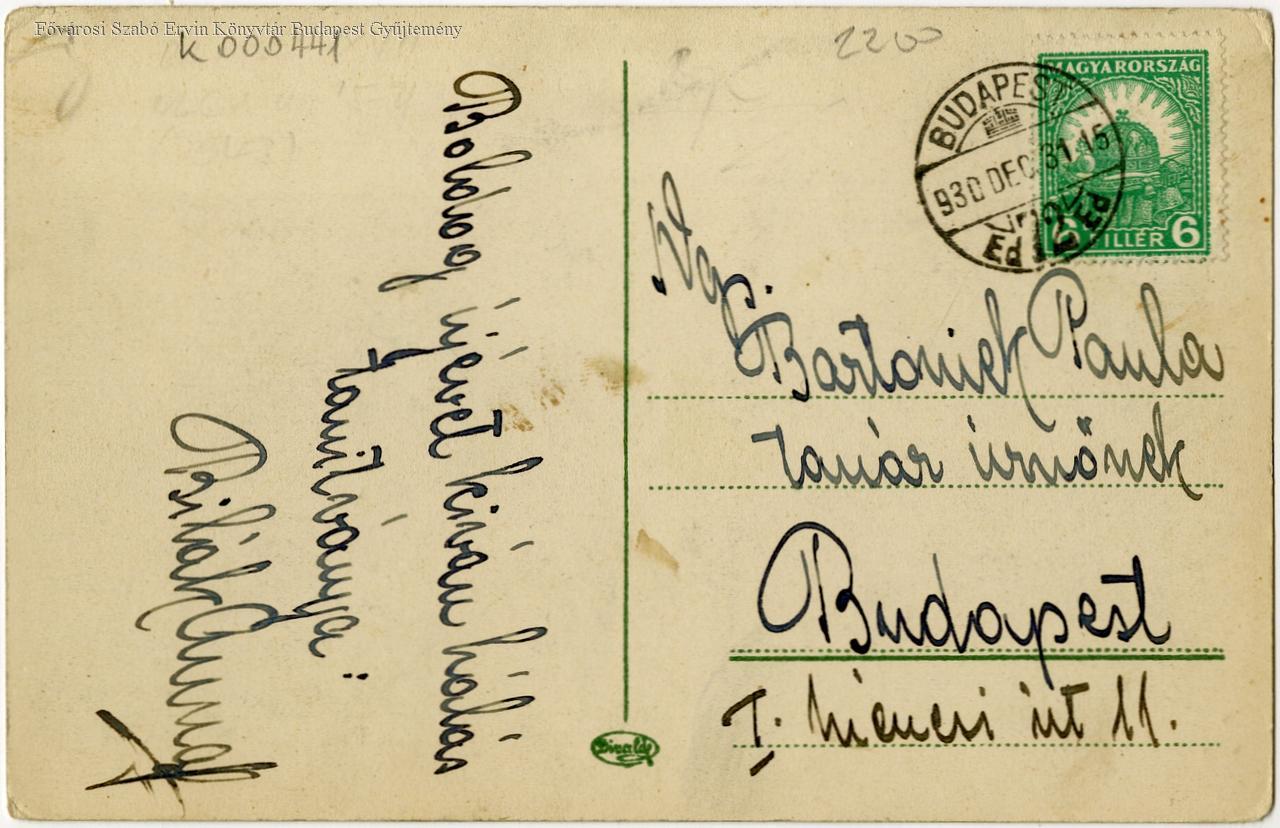 Fővárosi Szabó Ervin Könyvtár Budapest Gyűjtemény
K 000441
2200
Boldog újévet kiván hálás
tanítványa:
Bilák Annus
MAGYARORSZÁG
6 FILLÉR 6
BUDAPEST
930 DEC. 31. 15
Ngs.
Bartoniek Paula
tanár úrnőnek
Budapest
I. Ménesi út 11.
Divald